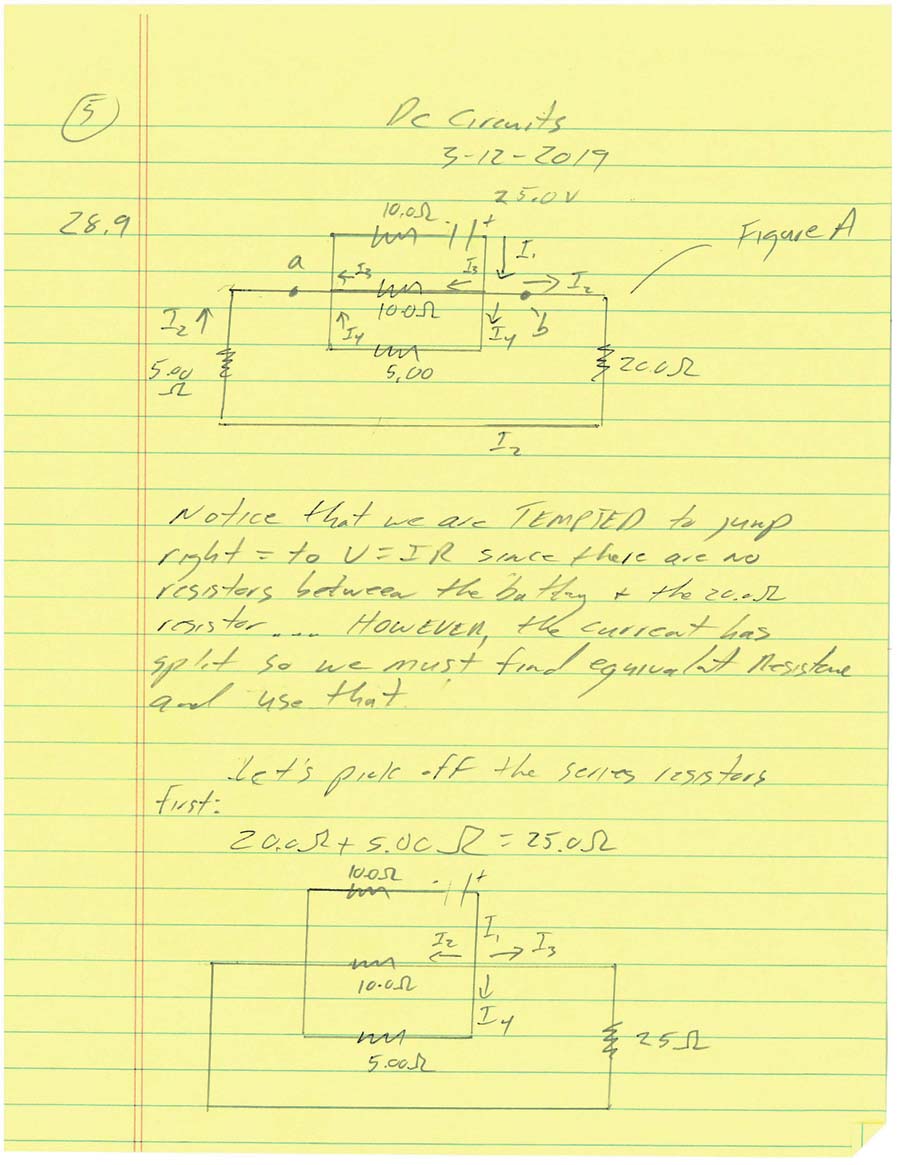 5
DC Circuits
3-12-2019
28.9
25.0V
10.0Ω
+
Figure A
I1
a
I3
I3
I2
10.0Ω
b
I2
I4
I4
5.00
Ω
5.00
20.0Ω
I2
Notice that we are TEMPTED to jump
right = to V=IR since there are no
resistors between the battry + the 20.0Ω
resistor.... HOWEVER, the current has
split so we must find equivalent Resistane
and use that.
Let's pick off the series resistors
first:
20.0Ω + 5.00Ω = 25.0Ω
10.0Ω
- +
I1
I2
I3
10.0Ω
I4
25Ω
5.00Ω